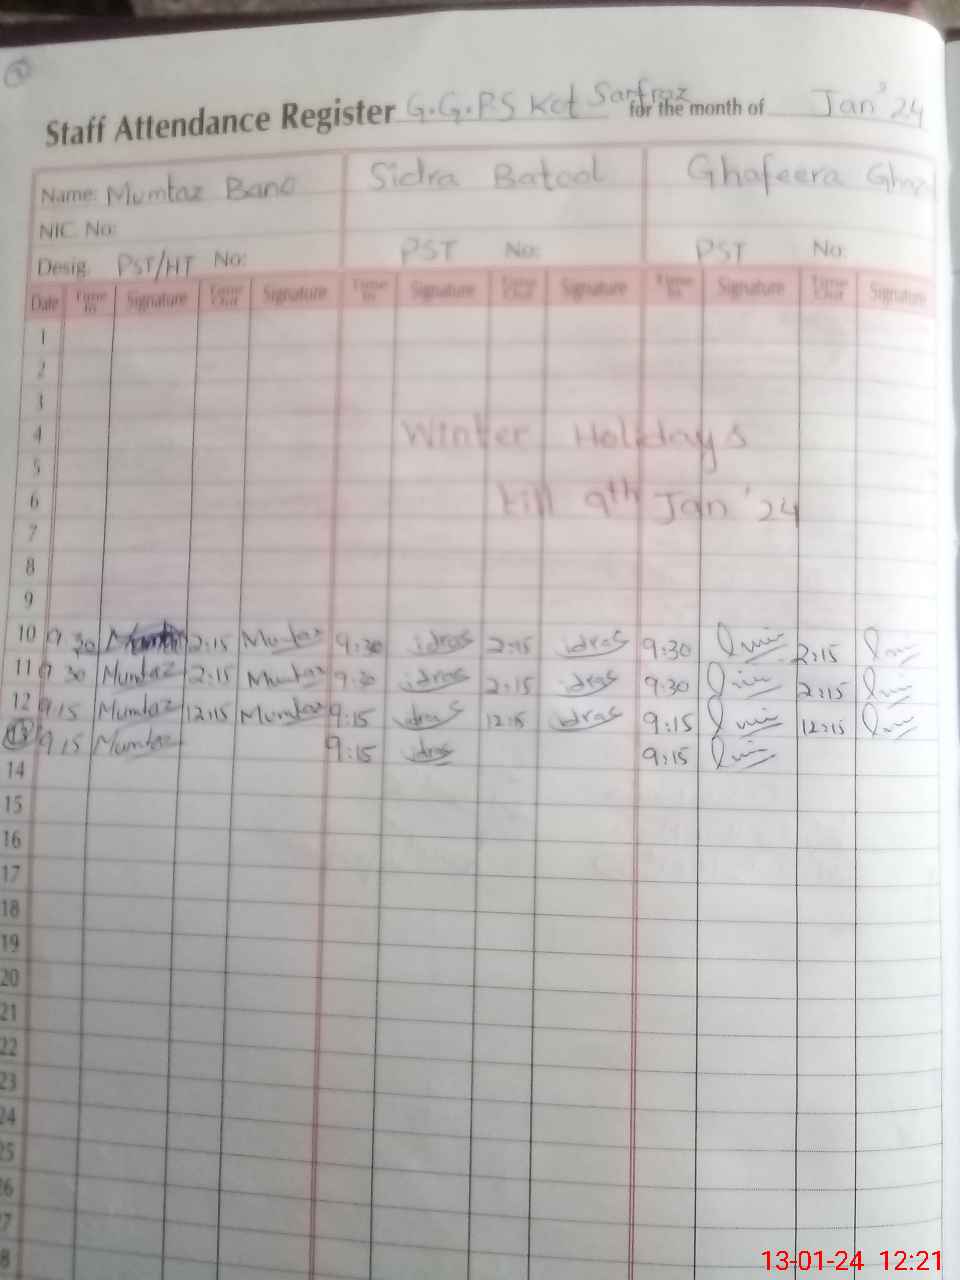 Staff Attendance Register G.G.P.S Kot Sarfraz for the month of Jan' 24
Name: Mumtaz Bano Sidra Batool Ghafeera
NIC. No:
Desig. PST/HT No: PST No: PST No:
Date Time In Signature Time Out Signature Time In Signature Time Out Signature Time In Signature Time Out Signature
1
2
3
4 Winter Holidays
5
6 till 9th Jan '24
7
8
9
10 9 30 Mumtaz 2:15 Mumtaz 9:30 idras 2:15 idras 9:30 2:15
11 9 30 Mumtaz 2:15 Mumtaz 9:30 idras 2:15 idras 9:30 2:15
12 9 15 Mumtaz 12:15 Mumtaz 9:15 idras 12:15 idras 9:15 12:15
13 9 15 Mumtaz 9:15 idras 9:15
14
15
16
17
18
19
20
21
22
23
24
25
26
27
28
13-01-24 12:21